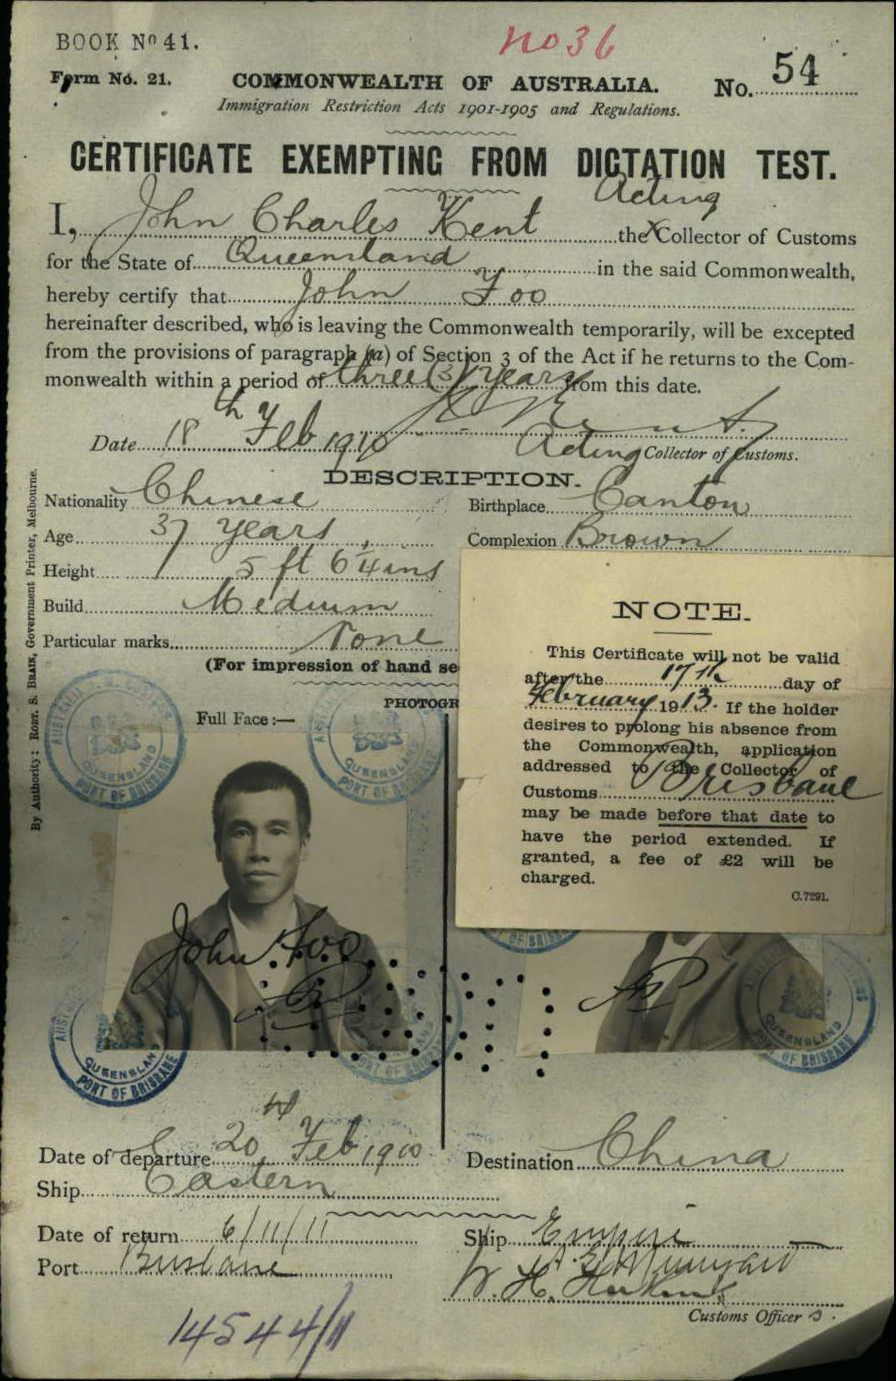 BOOK No 41.
No 36
Form No. 21.
COMMONWEALTH OF AUSTRALIA.
No. 54
Immigration Restriction Acts 1901-1905 and Regulations.
CERTIFICATE EXEMPTING FROM DICTATION TEST.
Acting
I, John Charles Kent the x Collector of Customs
for the State of Queensland in the said Commonwealth,
hereby certify that John Foo
hereinafter described, who is leaving the Commonwealth temporarily, will be excepted
from the provisions of paragraph (a) of Section 3 of the Act if he returns to the Com-
monwealth within a period of three (3) years from this date.
Date 18th Feb 1910
Acting Collector of Customs.
DESCRIPTION.
Nationality Chinese
Birthplace Canton
Age 37 years
Complexion Brown
Height 5 ft 6 1/4 ins
Build Medium
Particular marks None
(For impression of hand se
PHOTOGR
Full Face :—
By Authority: ROBT. S. BRAIN, Government Printer, Melbourne.
NOTE.
This Certificate will not be valid
after the 17th day of
February 1913. If the holder
desires to prolong his absence from
the Commonwealth, application
addressed to the Collector of
Customs Brisbane
may be made before that date to
have the period extended. If
granted, a fee of £2 will be
charged.
C.7291.
QUEENSLAND
PORT OF BRISBANE
QUEENSLAND
PORT OF BRISBANE
John Foo
QUEENSLAND
PORT OF BRISBANE
QUEENSLAND
PORT OF BRISBANE
Date of departure 20th Feb 1910
Destination China
Ship Eastern
Date of return 6/11/11
Ship Empire
Port Brisbane
W. H.
Customs Officer s.
14544/11